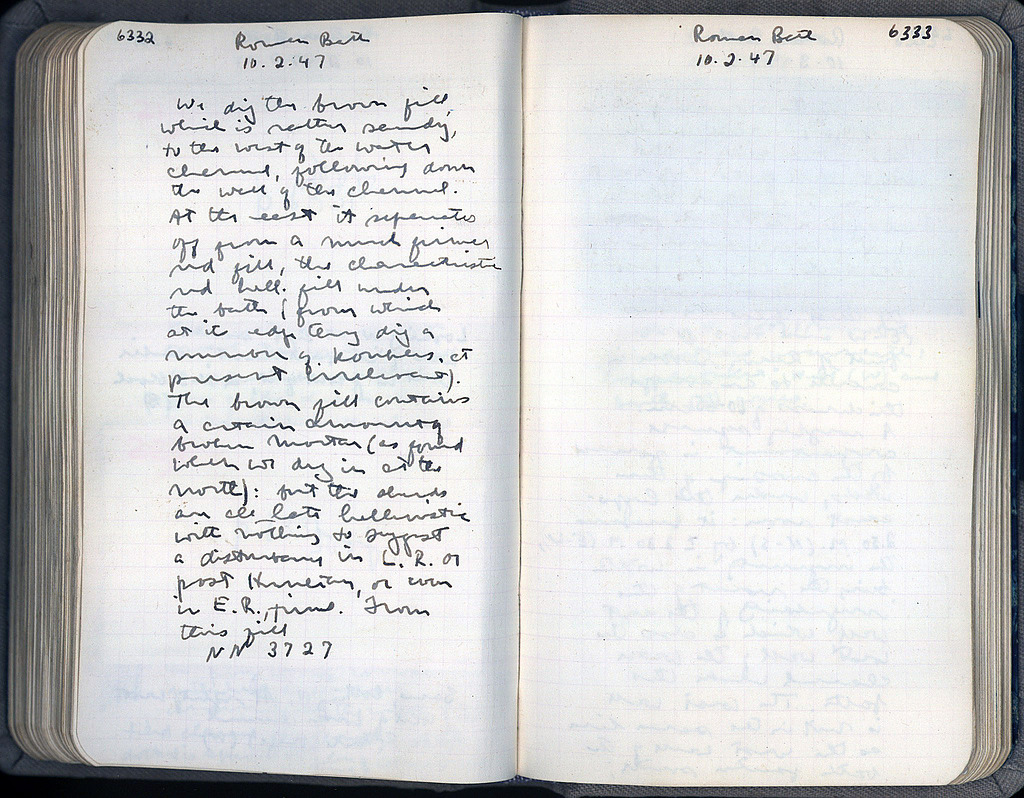 6332
Roman Bath
10.2.47
We dig the brown fill,
which is rather sandy,
to the west of the water
channel, following down
the wall of the channel.
At the east it separates
off from a much firmer
red fill, the characteristic
red hell. fill under
the bath (from which
at its edge they dig a
number of kombess. at
present irrelevant).
The brown fill contains
a certain amount of
broken mortar (as found
when we dug in at the
north): but the sherds
are all late hellenistic
with nothing to suggest
a disturbance in L.R. or
post Herulian, or even
in E.R., times. From
this fill
NN 3727
6333
Roman Bath
10.2.47